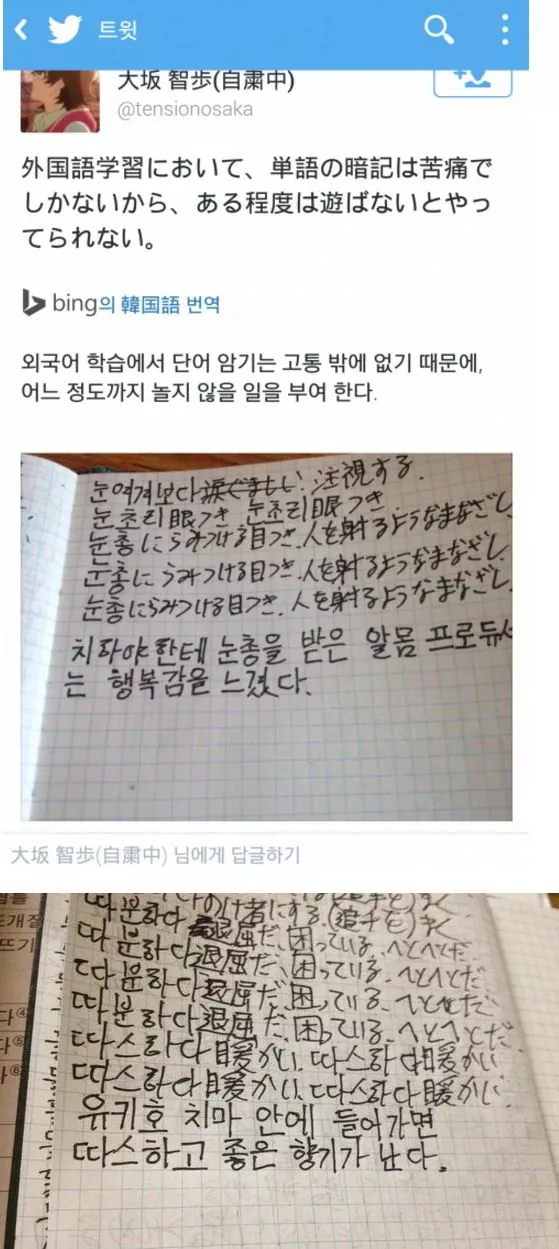 트윗
大坂 智歩(自粛中)
@tensionosaka
外国語学習において、単語の暗記は苦痛で
しかないから、ある程度は遊ばないとやっ
てられない。
bing의 韓国語 번역
외국어 학습에서 단어 암기는 고통 밖에 없기 때문에,
어느 정도까지 놀지 않을 일을 부여 한다.
눈여겨보다 涙ぐましい 注視する.
눈초리 眼つき 눈초리 眼つき
눈총 にらみつける目つき. 人を射るようなまなざし
눈총 にらみつける目つき. 人を射るようなまなざし
눈총 にらみつける目つき. 人を射るようなまなざし
치하야한테 눈총을 받은 알몸 프로듀서
는 행복감을 느꼈다.
大坂 智歩(自粛中) 님에게 답글하기
の け者にする,
따분하다 退屈だ、困っている、へとへとだ.
따분하다 退屈だ、困っている、へとへとだ.
따분하다 退屈だ、困っている、へとへとだ
따분하다 退屈だ、困っている、へとへとだ.
따스하다 暖かい. 따스하다 暖かい
따스하다 暖かい. 따스하다 暖かい.
유키호 치마 안에 들어가면
따스하고 좋은 향기가 난다.